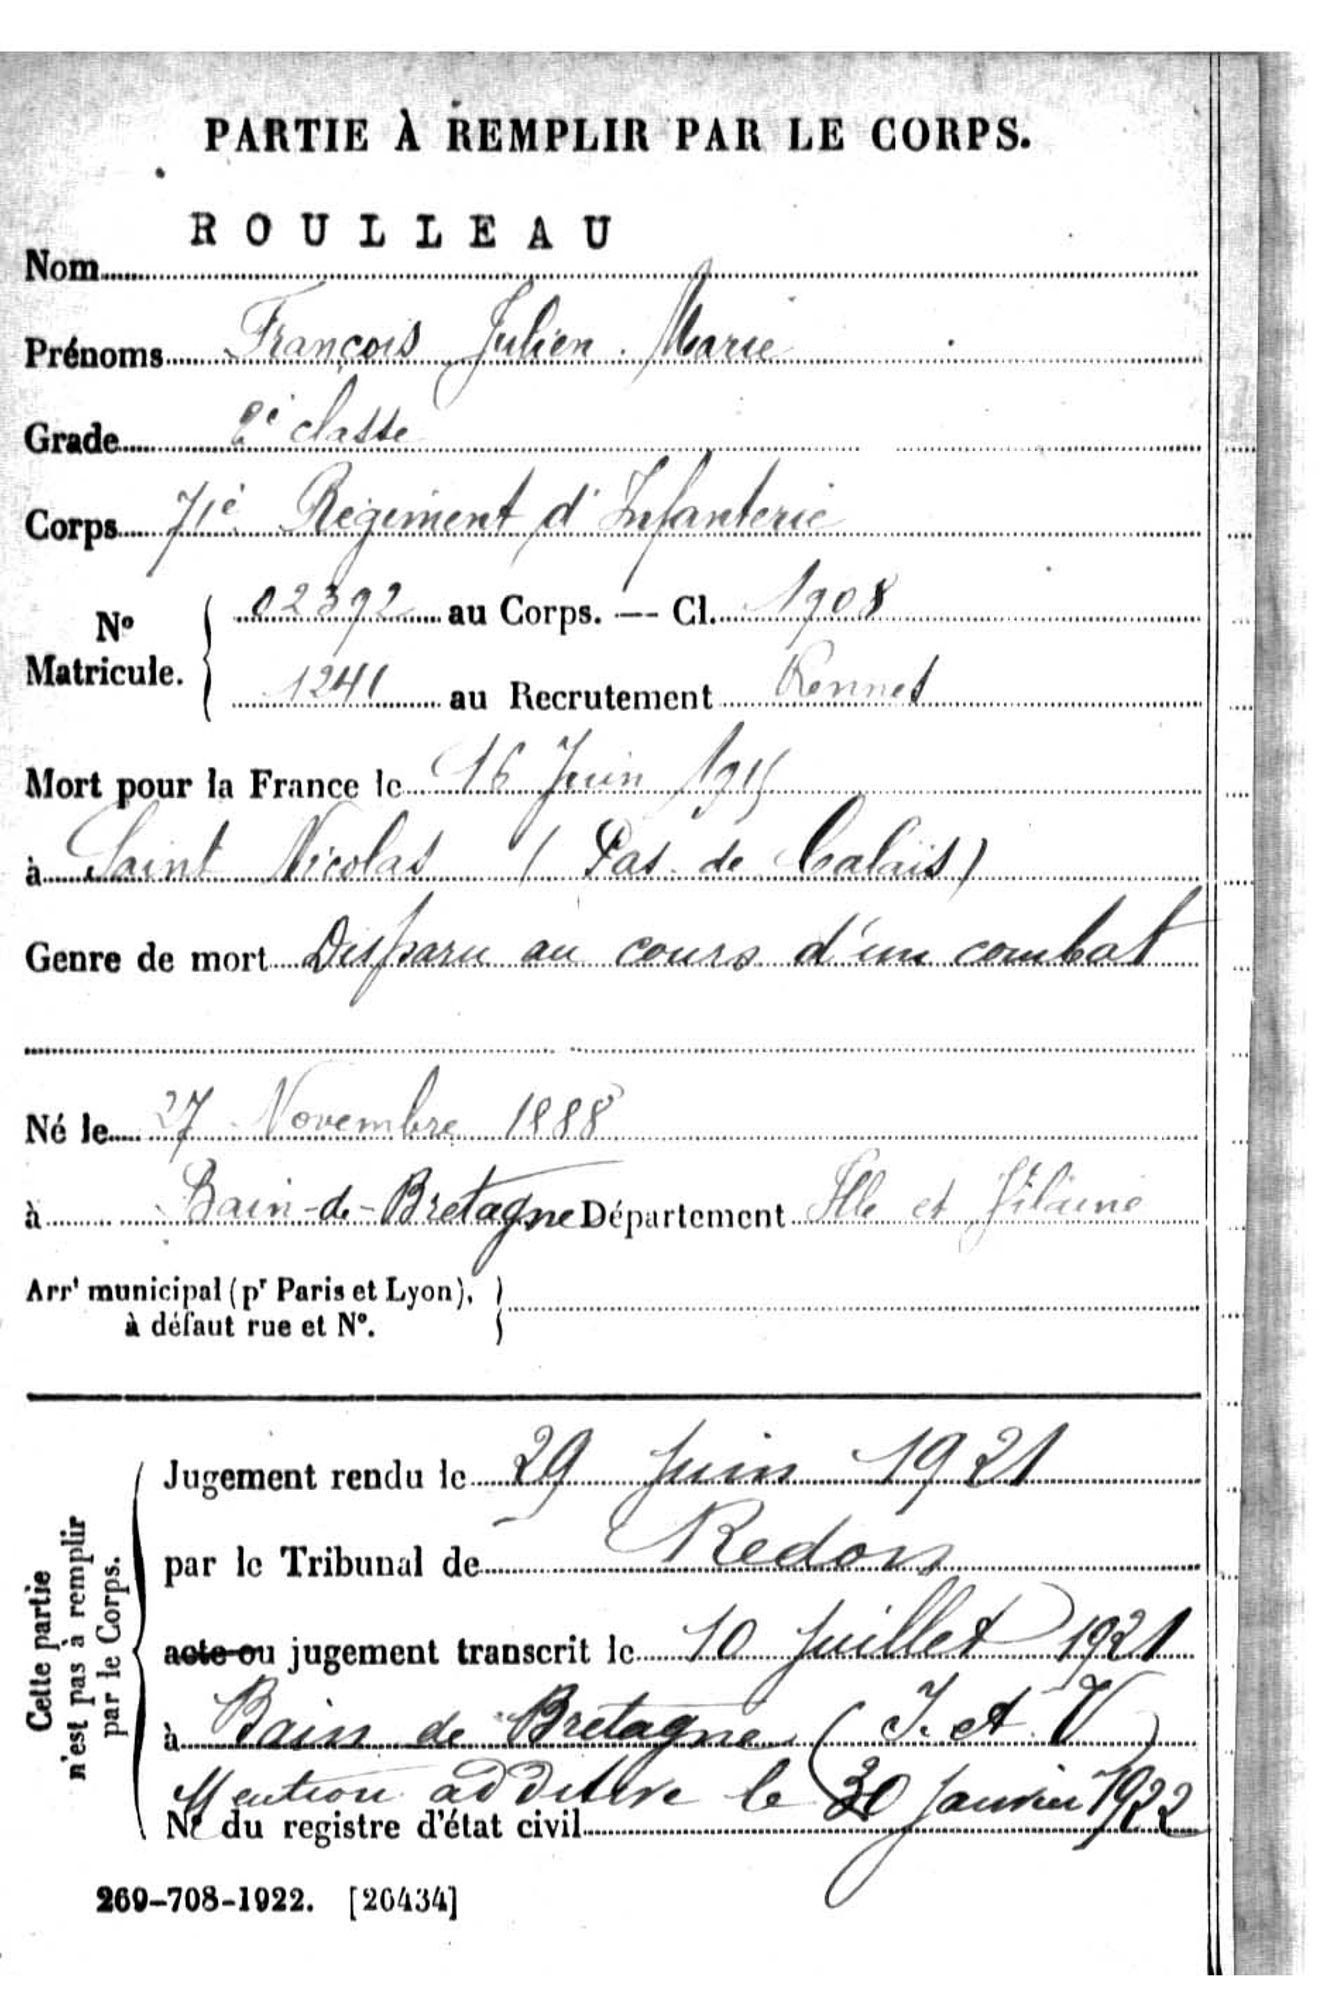 PARTIE À REMPLIR PAR LE CORPS.
ROULLEAU
Nom
Prénoms François Julien Marie
Grade 2e classe
Corps 71e Régiment d'Infanterie
No Matricule. 02392 au Corps. — Cl. 1908
1241 au Recrutement Rennes
Mort pour la France le 16 Juin 1915
à Saint Nicolas (Pas de Calais)
Genre de mort Disparu au cours d'un combat
Né le 27 Novembre 1888
à Bain-de-Bretagne Département Ille et Vilaine
Arrt municipal (pr Paris et Lyon),
à défaut rue et No.
Cette partie
n'est pas à remplir
par le Corps.
Jugement rendu le 29 Juin 1921
par le Tribunal de Redon
acte ou jugement transcrit le 10 Juillet 1921
à Bain de Bretagne (I. et V)
Mention additive le 30 Janvier 1922
No du registre d'état civil
269-708-1922. [26434]